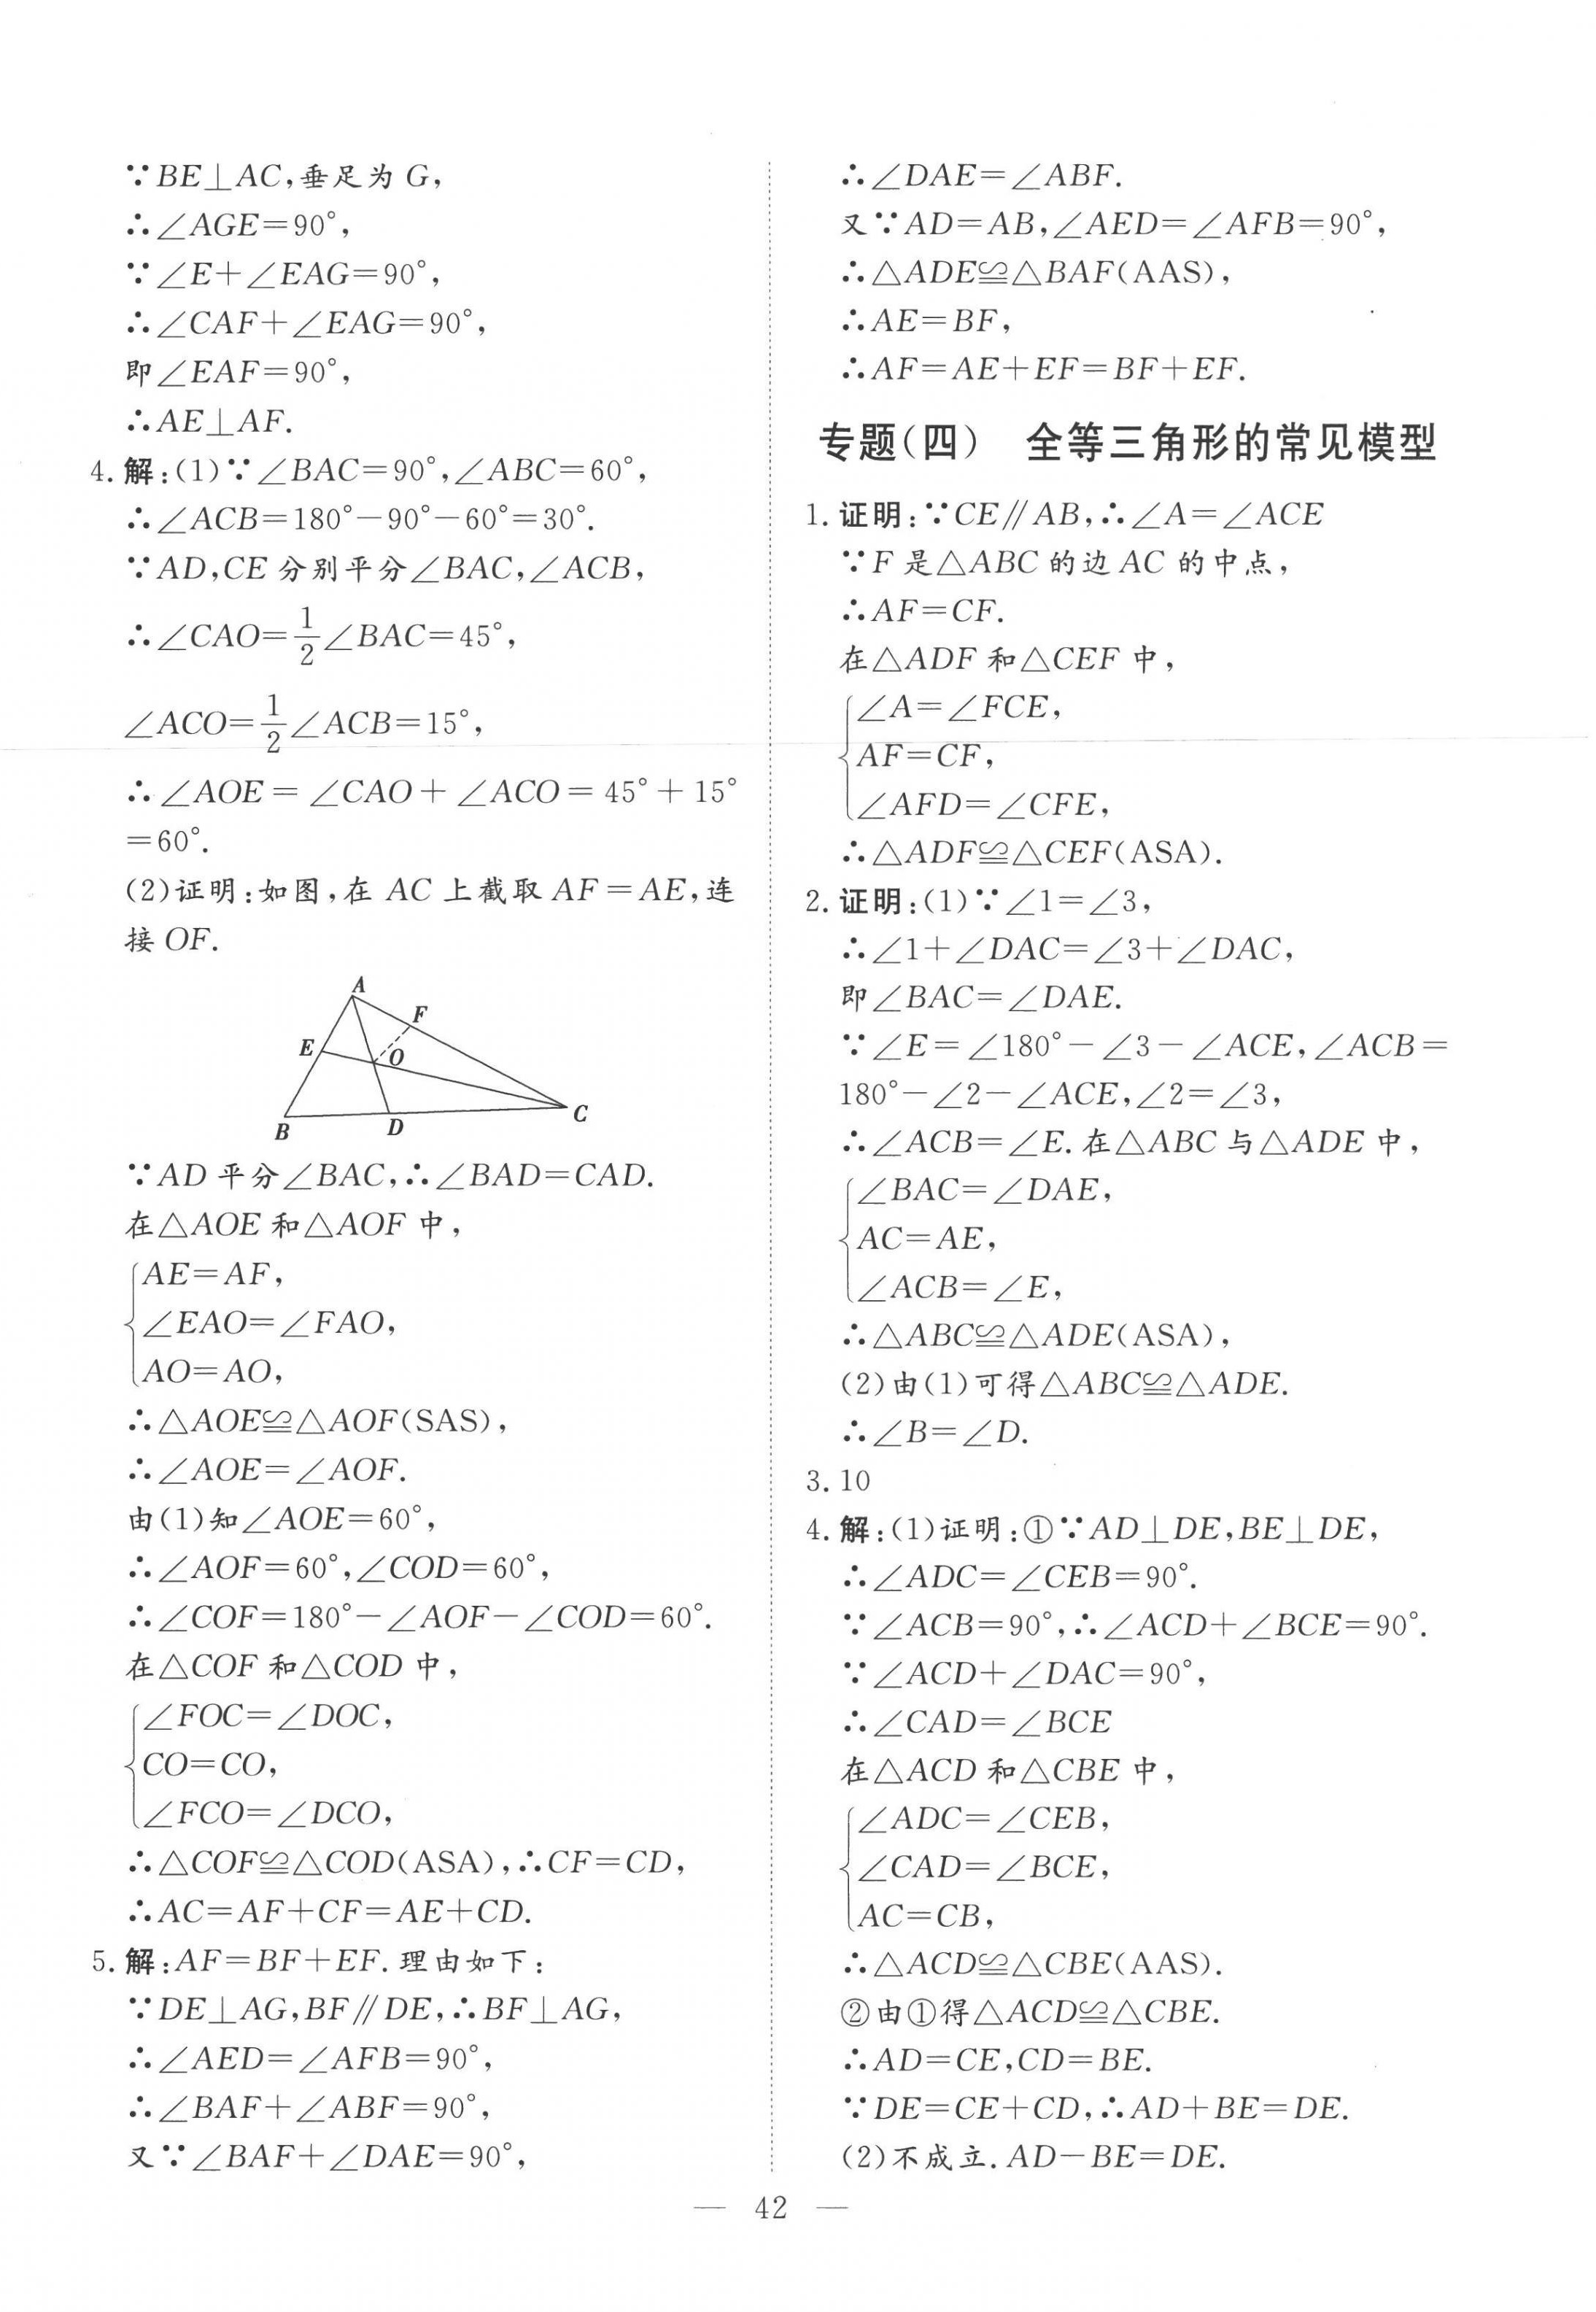 ∵BE⊥AC,垂足为 G,
∴∠AGE=90°,
∵∠E+∠EAG=90°,
∴∠CAF+∠EAG=90°,
即∠EAF=90°,
∴AE⊥AF.
4.解:(1)∵∠BAC=90°,∠ABC=60°,
∴∠ACB=180°-90°-60°=30°.
∵AD,CE 分别平分∠BAC,∠ACB,
∴∠CAO=1/2∠BAC=45°,
∠ACO=1/2∠ACB=15°,
∴∠AOE=∠CAO+∠ACO=45°+15°
=60°.
(2)证明:如图,在 AC 上截取 AF=AE,连
接 OF.
A
F
E
O
B
D
C
∵AD 平分∠BAC,∴∠BAD=CAD.
在△AOE 和△AOF 中,
AE=AF,
∠EAO=∠FAO,
AO=AO,
∴△AOE≌△AOF(SAS),
∴∠AOE=∠AOF.
由(1)知∠AOE=60°,
∴∠AOF=60°,∠COD=60°,
∴∠COF=180°-∠AOF-∠COD=60°.
在△COF 和△COD 中,
∠FOC=∠DOC,
CO=CO,
∠FCO=∠DCO,
∴△COF≌△COD(ASA),∴CF=CD,
∴AC=AF+CF=AE+CD.
5.解:AF=BF+EF.理由如下:
∵DE⊥AG,BF∥DE,∴BF⊥AG,
∴∠AED=∠AFB=90°,
∴∠BAF+∠ABF=90°,
又∵∠BAF+∠DAE=90°,
∴∠DAE=∠ABF.
又∵AD=AB,∠AED=∠AFB=90°,
∴△ADE≌△BAF(AAS),
∴AE=BF,
∴AF=AE+EF=BF+EF.
专题(四) 全等三角形的常见模型
1.证明:∵CE∥AB,∴∠A=∠ACE
∵F 是△ABC 的边 AC 的中点,
∴AF=CF.
在△ADF 和△CEF 中,
∠A=∠FCE,
AF=CF,
∠AFD=∠CFE,
∴△ADF≌△CEF(ASA).
2.证明:(1)∵∠1=∠3,
∴∠1+∠DAC=∠3+∠DAC,
即∠BAC=∠DAE.
∵∠E=∠180°-∠3-∠ACE,∠ACB=
180°-∠2-∠ACE,∠2=∠3,
∴∠ACB=∠E.在△ABC 与△ADE 中,
∠BAC=∠DAE,
AC=AE,
∠ACB=∠E,
∴△ABC≌△ADE(ASA),
(2)由(1)可得△ABC≌△ADE.
∴∠B=∠D.
3.10
4.解:(1)证明:①∵AD⊥DE,BE⊥DE,
∴∠ADC=∠CEB=90°.
∵∠ACB=90°,∴∠ACD+∠BCE=90°.
∵∠ACD+∠DAC=90°,
∴∠CAD=∠BCE
在△ACD 和△CBE 中,
∠ADC=∠CEB,
∠CAD=∠BCE,
AC=CB,
∴△ACD≌△CBE(AAS).
②由①得△ACD≌△CBE.
∴AD=CE,CD=BE.
∵DE=CE+CD,∴AD+BE=DE.
(2)不成立.AD-BE=DE.
— 42 —